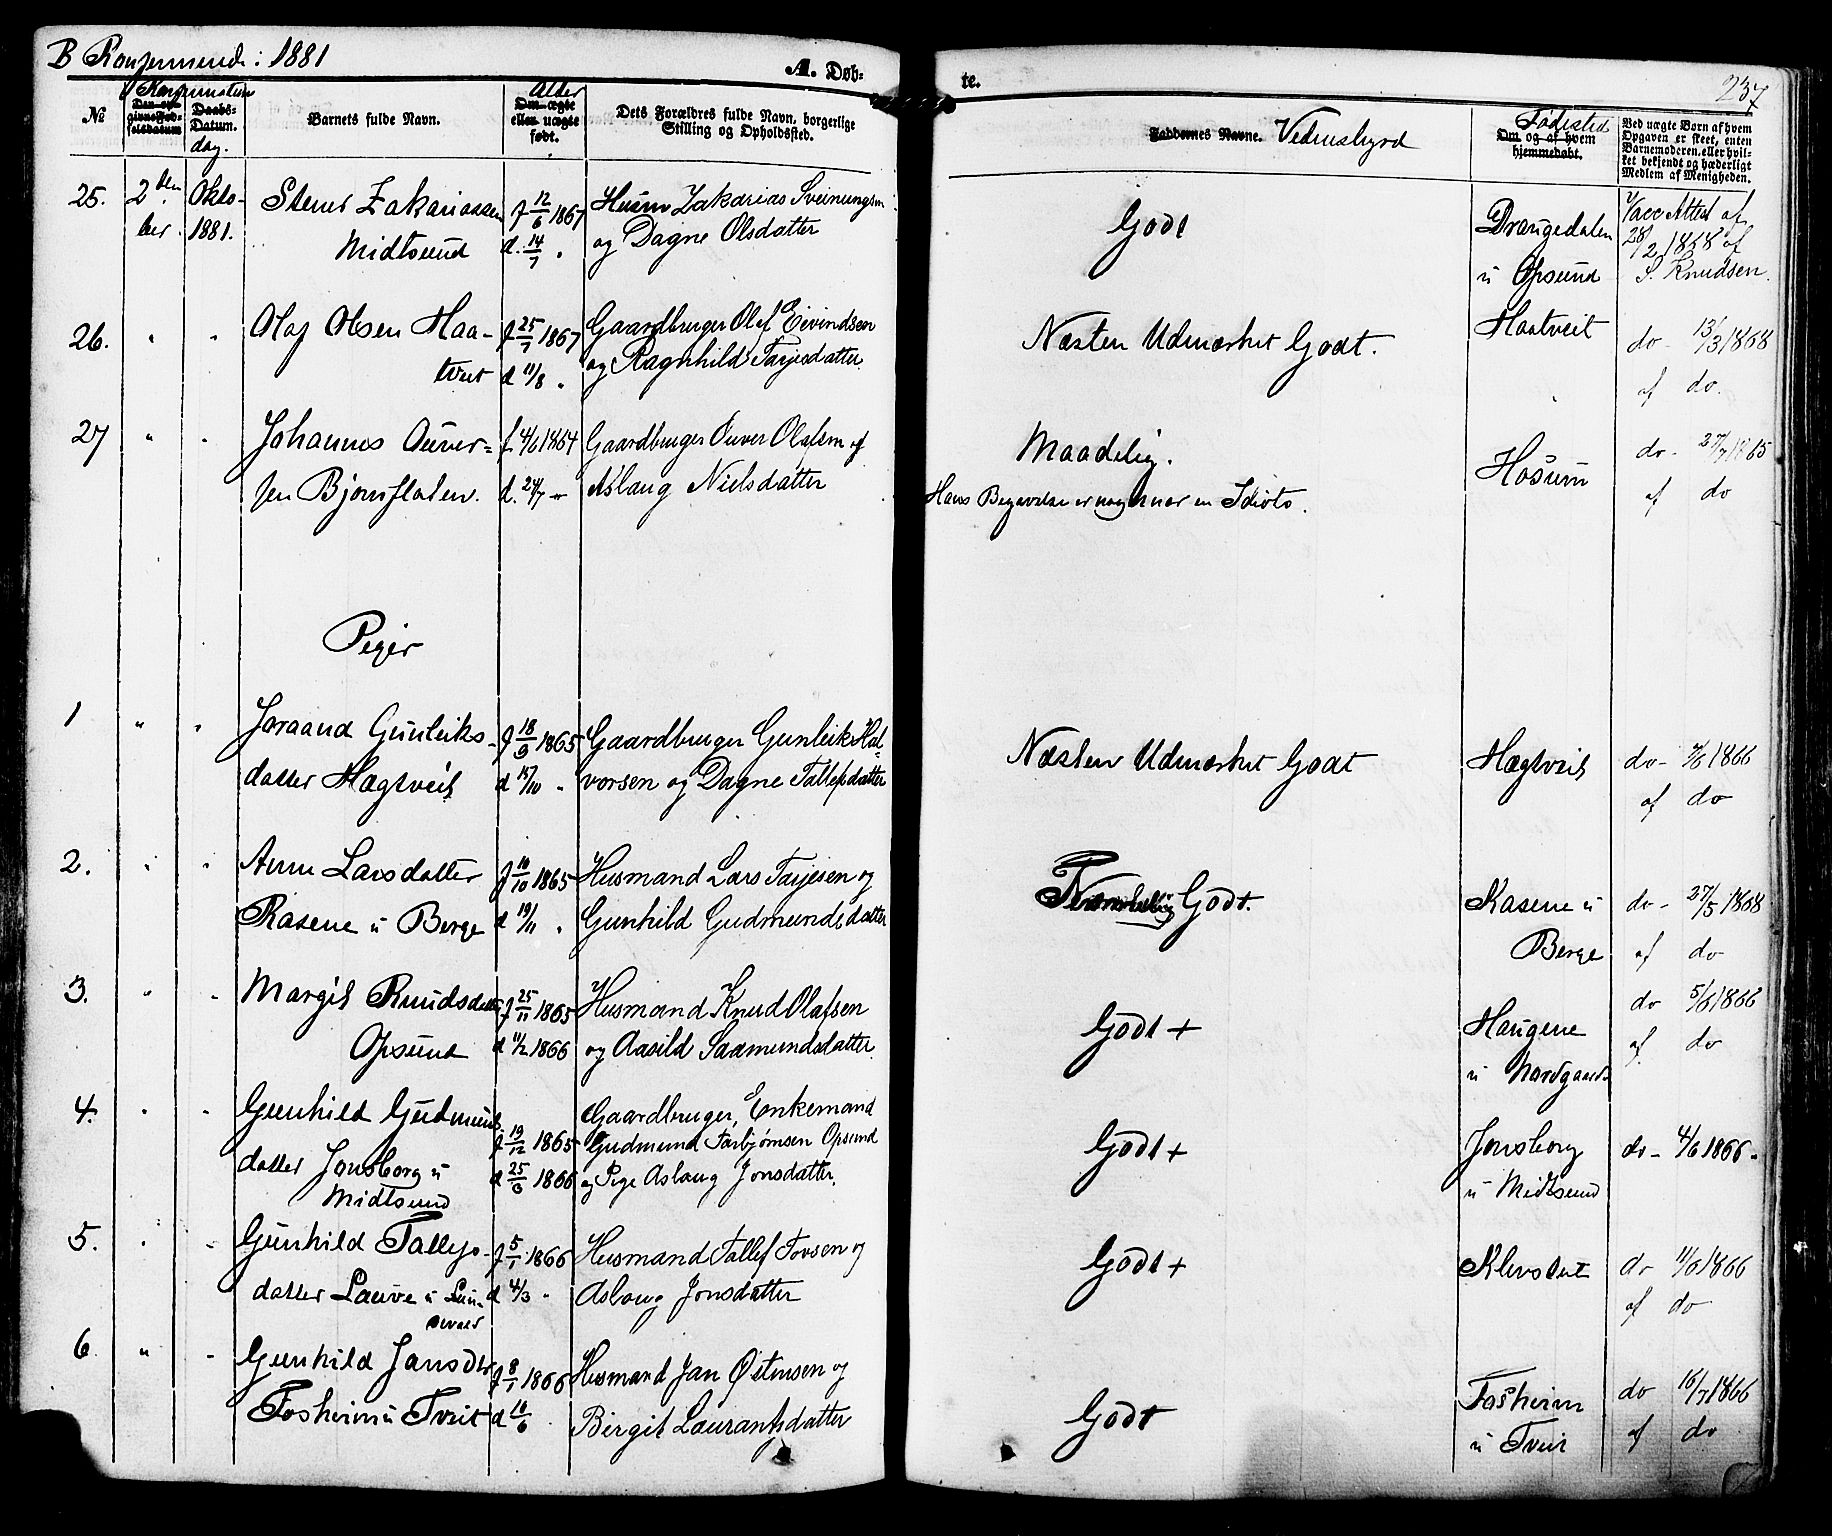 B Konfermerede: 1881
A. Døb-
te.
237
№
Konfirmations
Den op-
givne Fød-
selsdatum
Daabs-
Datum.
dag.
Barnets fulde Navn.
Alder
Om ægte
eller uægte
født.
Dets Forældres fulde Navn, borgerlige
Stilling og Opholdssted.
Faddernes Navne. Vidnesbyrd
Fødested
Om og af hvem
hjemmedøbt.
Ved uægte Børn af hvem
Opgaven er skeet, enten
Barnemoderen, eller hvil-
ket bekjendt og hæderligt
Medlem af Menigheden.
25. 2den Okto-
ber 1881.
Stener Zakariassen
Midtsund
f 12/6 1867
d. 14/7 "
Husm Zakarias Sveinungsen
og Dagne Olsdatter
Godt
Drangedalen
u Opsund
Vacc Attest af
28/2 1868 af
S. Knudsen.
26. " "
Olaf Olsen Haa-
tveit
f 25/7 1867
d 11/8 "
Gaardbruger Olaf Eivindsen
og Ragnhild Tarjesdatter
Næsten Udmærket Godt.
Haatveit
do - 13/3 1868
af do.
27 " "
Johannes Ouver-
sen Bjønnflaten.
f 4/6 1864
d. 24/7 "
Gaardbruger Ouver Olafsen og
Aslaug Nielsdatter
Maadelig.
Hans Begavelse er nogenær en Idiots.
Hosum
do - 27/7 1865
af do
Piger
1 " "
Joraand Gunleiks-
datter Hægtveit
f 18/9 1865
d 15/10 "
Gaardbruger Gunleik Hal-
vorsen og Dagne Tallefsdatter
Næsten Udmærket Godt
Hægtveit
do - 4/6 1866
af do
2. " "
Anne Larsdatter
Rasene u Berge
f 10/10 1865
d 19/11 "
Husmand Lars Tarjesen og
Gunhild Gudmundsdatter
Temmelig Godt.
Rasene u
Berge
do - 27/5 1868
af do
3. " "
Margit Knudsdatter
Opsund
f 25/11 1865
d 11/2 1866
Husmand Knud Olafsen
og Aasild Saamundsdatter
Godt +
Haugene
u Nordgaarde
do 5/6 1866
af do
4. " "
Gunhild Gudmunds-
datter Jonsborg u
Midtsund
f 19/12 1865
d 25/3 1866
Gaardbruger, Enkemand
Gudmund Torbjørnsen Opsund
og Pige Aslaug Jonsdatter.
Godt +
Jonsborg
u Midtsund
do - 4/6 1866 -
5. " "
Gunhild Tallefs-
datter Lauve u Lun-
f 5/1 1866
d 4/3 "
Husmand Tallef Tovsen og
Aslaug Jonsdatter
Godt +
do 11/6 1866
af do
6 " "
Gunhild Jansdtr
Fosheim u Tveit
f 8/1 1866
d 10/6
Husmand Jan Østensen og
Birgit Laurantsdatter
Godt
Fosheim
u Tveit
do 16/7 1866
af do